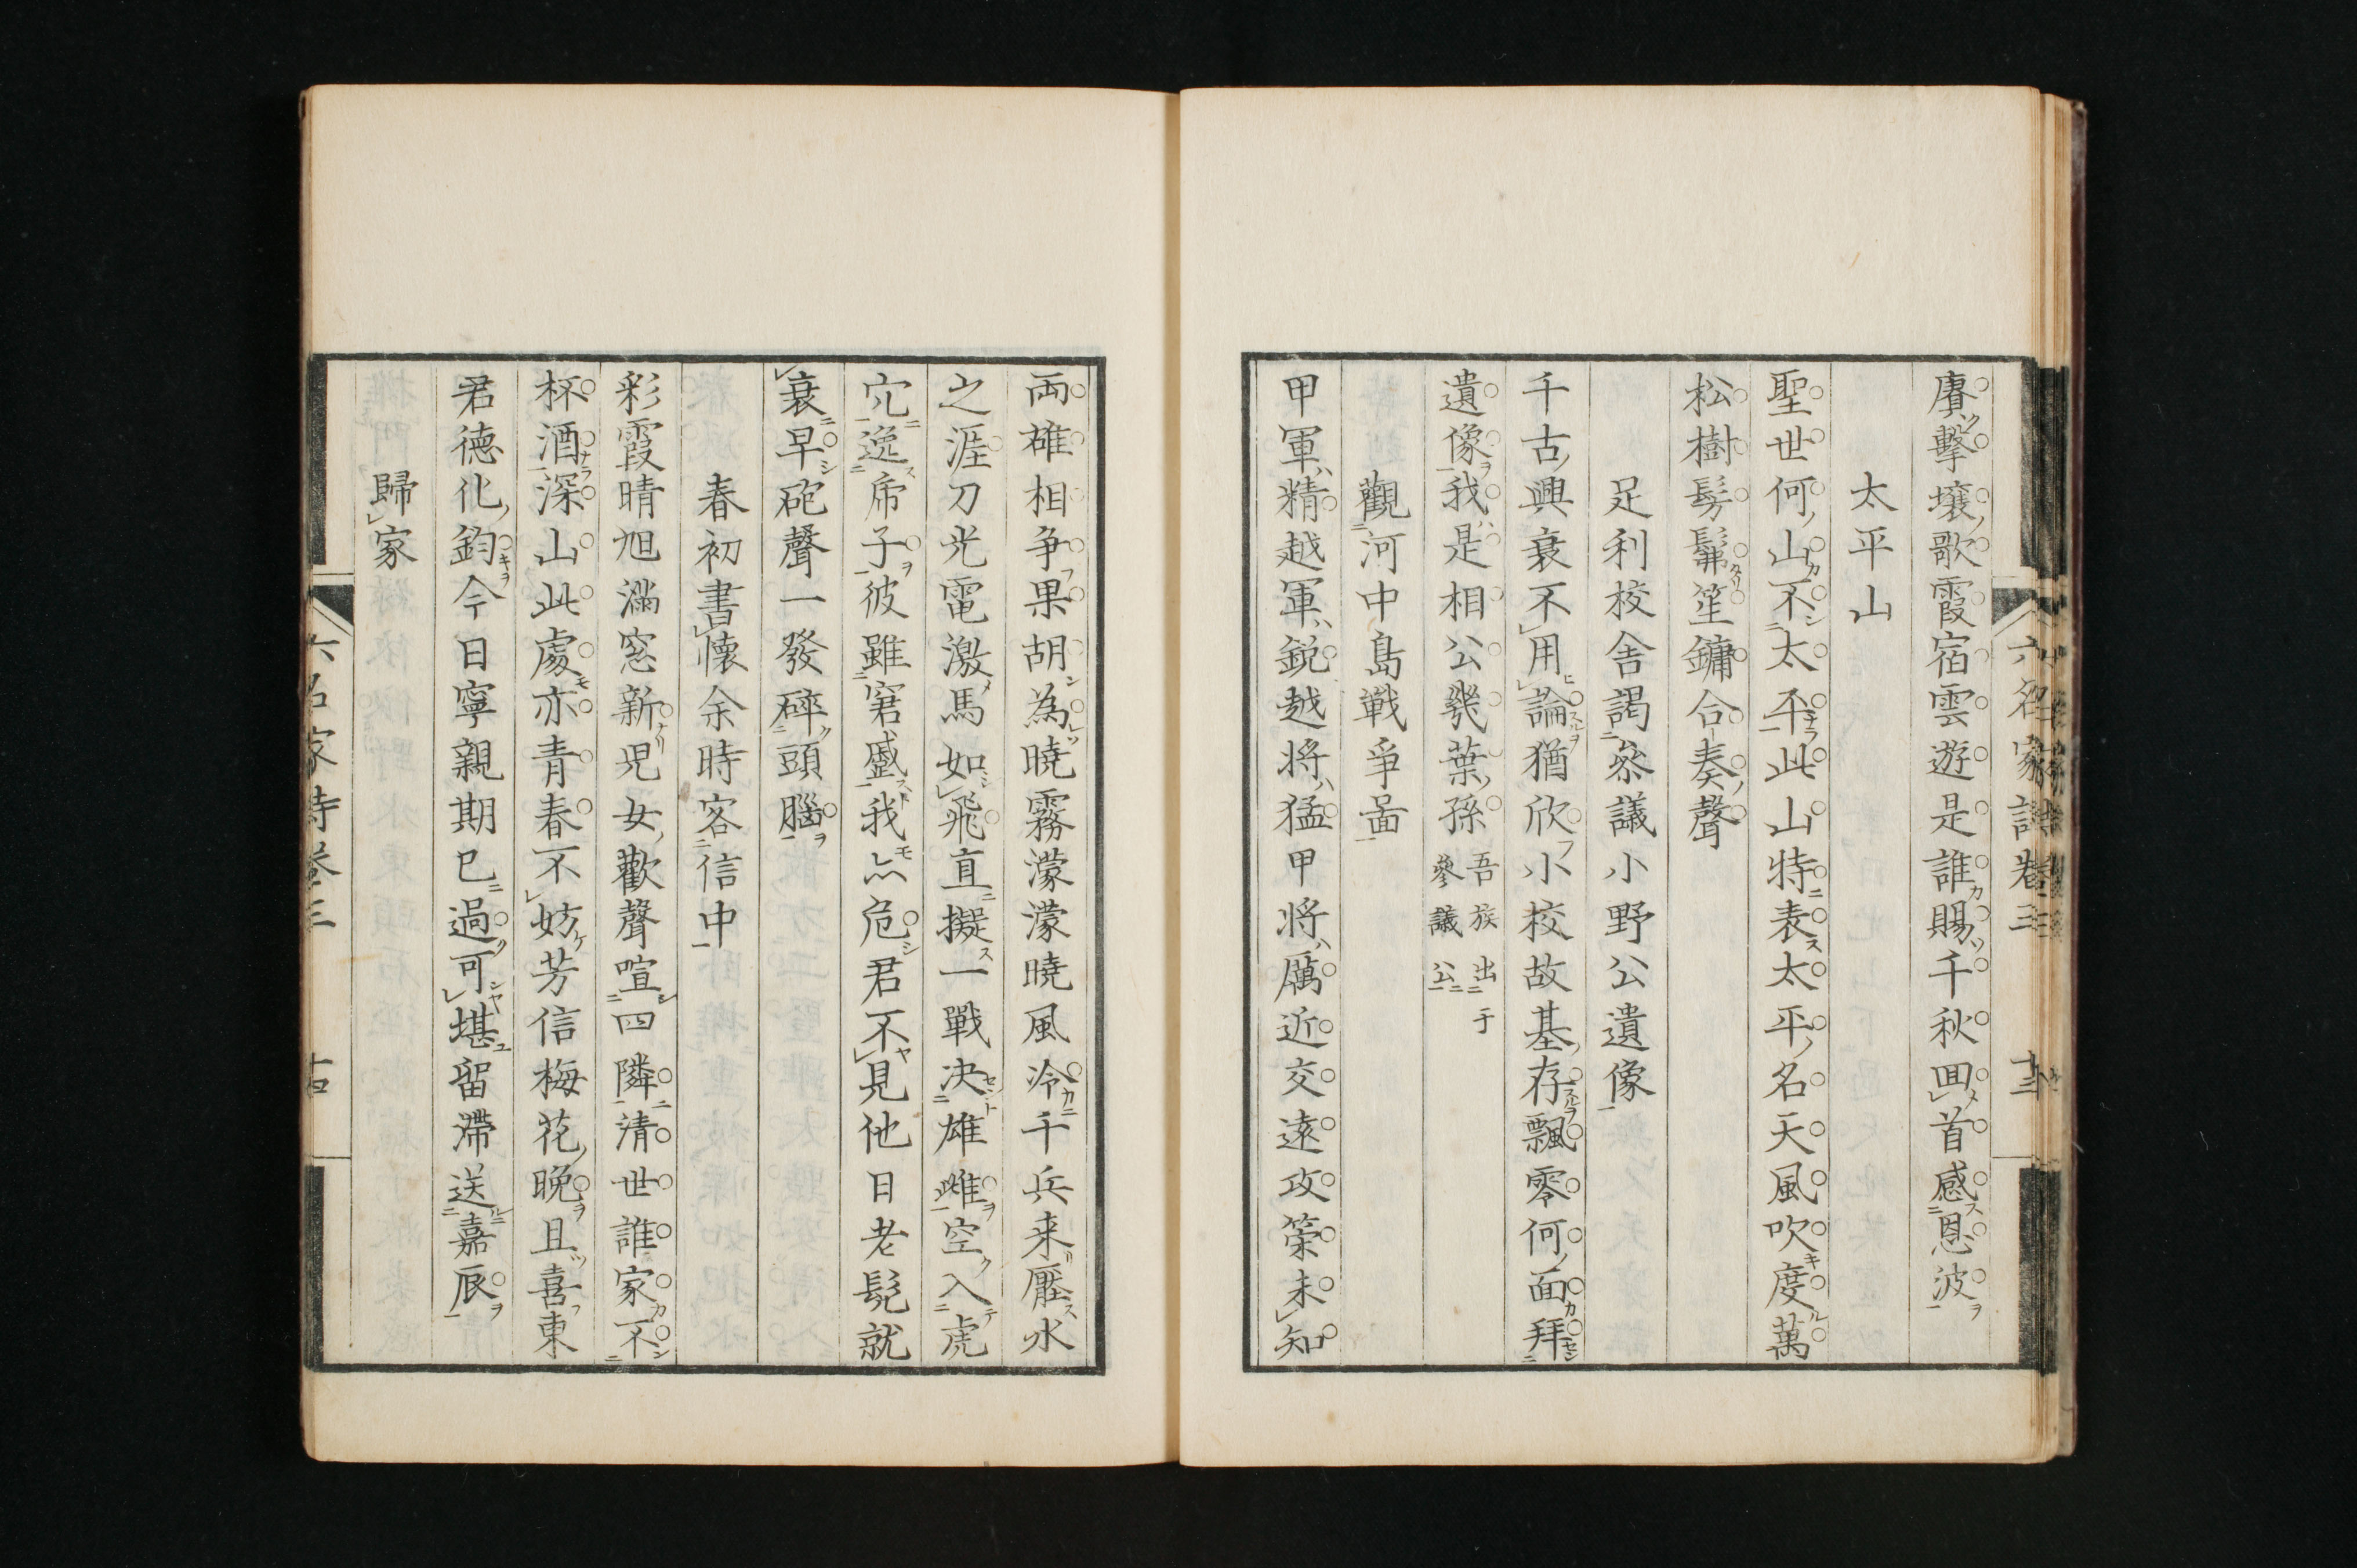 六名家詩卷三 十三
賡擊壤歌霞宿雲遊是誰賜千秋回首感恩波
太平山
聖世何山不太平此山特表太平名天風吹度萬
松樹髣髴笙鏞合奏聲
足利校舍謁參議小野公遺像
千古興衰不用論猶欣小校故基存飄零何面拜
遺像我是相公幾葉孫 吾族出于參議公
觀河中島戰爭圖
甲軍精越軍銳越將猛甲將厲近交遠攻策未知
兩雄相爭果胡為曉霧濛濛曉風冷千兵来壓水
之涯刀光電激馬如飛直擬一戰决雄雌空入虎
穴逸乕子彼雖窘蹙我亦危君不見他日老髡就
衰早砲聲一發碎頭腦
春初書懷余時客信中
彩霞晴旭滿窓新兒女歡聲喧四隣清世誰家不
杯酒深山此處亦青春不妨芳信梅花晚且喜東
君德化鈞今日寧親期已過可堪留滯送嘉辰
歸家
六名家詩卷三 十四